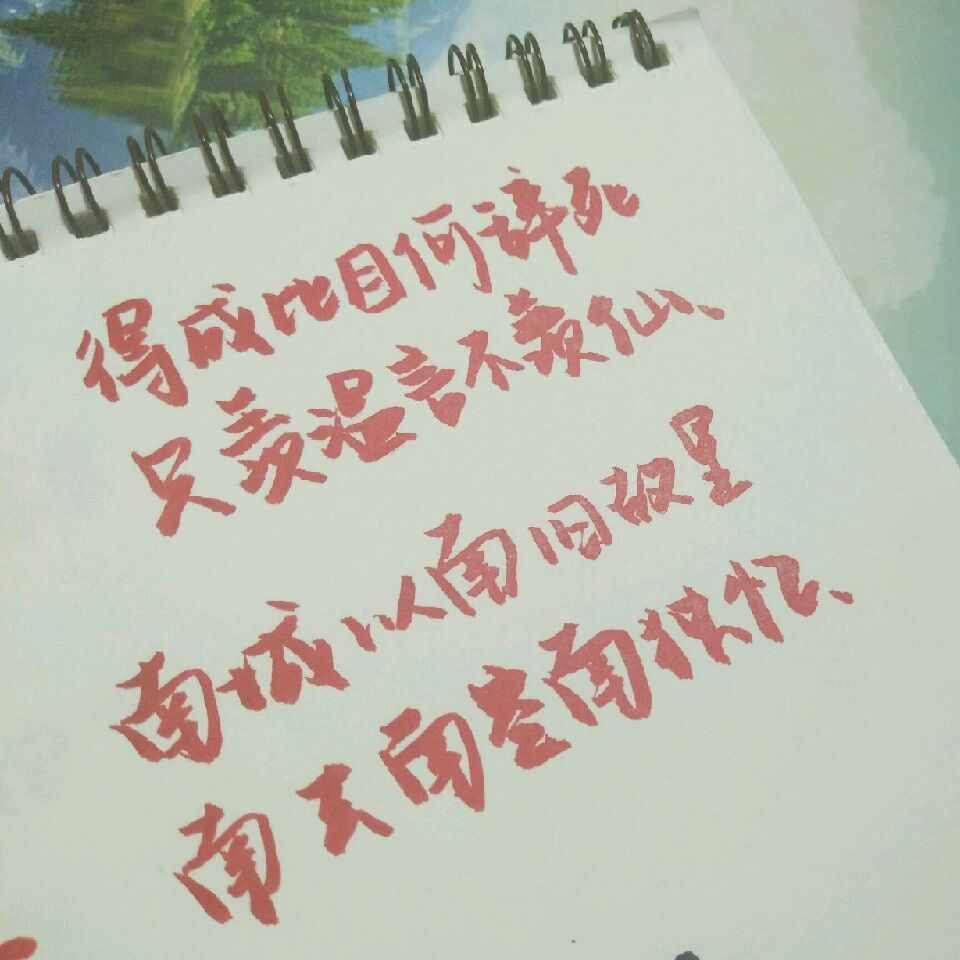 得成比目何辞死
只羡温言不羡仙、
南城以南旧故里
南南叁南独忆、